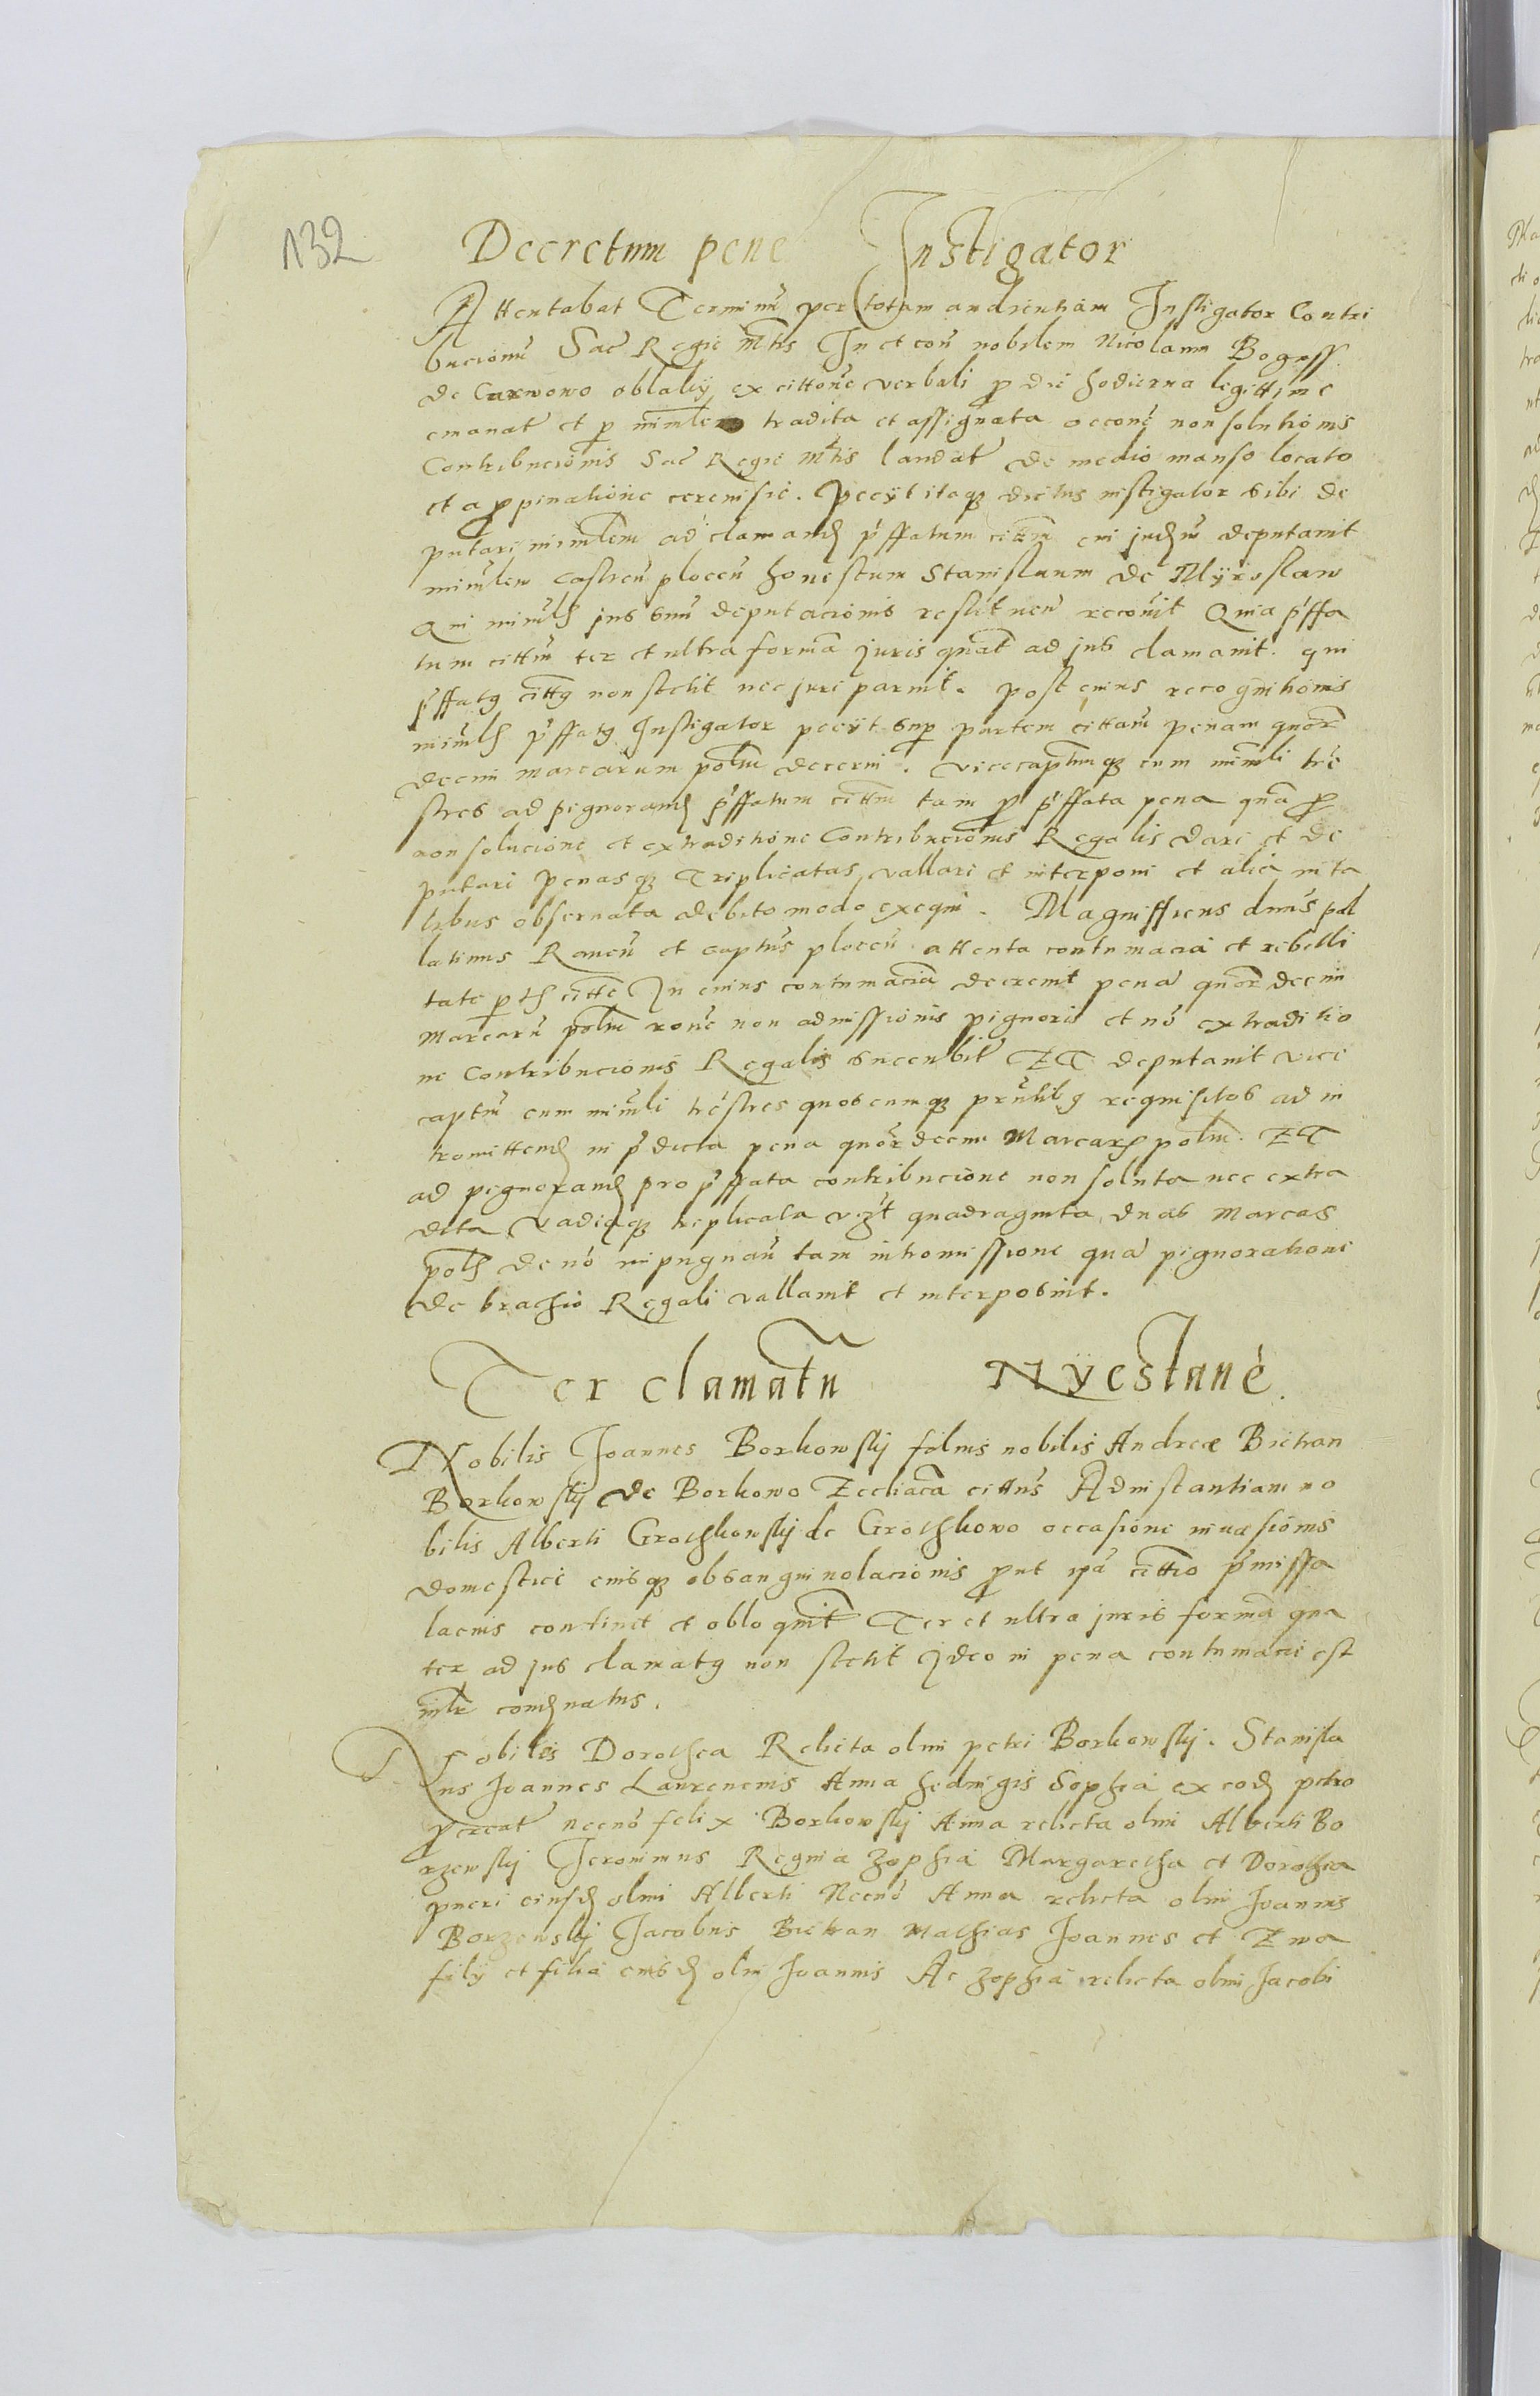 132
Decretum pene Instigator
Attentabat Terminū per totam audientiam Instigator Contri
bucionū Sac̄ Regie Mtis In et con̄ nobilem Nicolaum Boguss
de Carwowo oblatÿ ex cittōne verbali p die hodierna legittime
emanat̄ et p min̄lem tradita et assignata occōne non solutionis
Contribucionis Sac̄ Regie Mtis laudat̄ de medio manso locato
et a ppinatione cerevisie. Peeÿt itaqȝ dictus instigator sibi de
putari min̄lem ad clamand p̄ffatum cittm̄ cui judm̄ deputavit
min̄lem castren̄ plocen̄ honestum Stanislaum de Mÿroslaw
Qui min̄lis jus suū deputacionis restituen̄ recōvit Quia p̄ffa
tum cittm̄ ter et ultra formā juris quat̄ ad jus clamavit. qui
p̄ffatg cittg non stetit nec juri paruit. post cuius recognitionis
min̄lis p̄ffatg Instigator peeÿt sup partem cittam̄ penam quor̄
decim marcarum pol̄m decerni. Vicecaptm̄qȝ cum min̄li tr̄e
stres ad pignorand p̄ffatum cittm̄ tam p p̄ffata pena quā p
non solucione et extraditione Contribucionis Regalis dari et de
putari penasqȝ Triplicatas vallari et interponi et alia in ta
libus observata debito modo exequi. Magnifficus dnūs pal
latinus Raven̄ et captn̄s plocen̄ attenta contumacia et rebelli
tate ptis citte In cuius contumaciā decrevit penā quor̄decim
Marcarū pol̄m rōne non admissionis pignoris et nō extraditio
ne Contribucionis Regalis succubit̄ ET deputavit vice
captm̄ cum min̄li tr̄estres quoscumqȝ prn̄tibg requisitos ad in
tromittend in p̄dicta pena quor̄decim Marcarȝ pol̄m. ET
ad pignorand pro p̄ffata contribucione non soluta nec extra
dita Vadiaqȝ triplicata vizt quadraginta duas Marcas
pol̄s de nō inpugnan̄ tam intromissione quā pignoratione
de brachio Regali vallavit et interposuit.
Ter clamat̄u Nÿestane.
Nobilis Joannes Borkowskÿ filius nobilis Andree Bietran
Borkowskÿ de Borkowo Eccliacā cittus Ad instantiam no
bilis Alberti Grothkowskÿ de Grothkowo occasione invasionis
domestice eiusqȝ obsanguinolacionis put ipā cittio p̄missa
lacius continet et obloquit̄ Ter et ultra juris formā qua
ter ad jus clamatg non stetit Ideo in pena contumacie est
condnatus.
Nobiles Dorothea Relicta olim petri Borkowskÿ. Stanisla
us Joannes Laurencius Anna hedwigis Sophia ex eod petro
pcreat̄ necnō felix Borkowskÿ Anna relicta olim Alberti Bo
rzewskÿ Jeronimus Regina Zophia Margaretha et Dorothea
pueri eiusd olim Alberti Necnō Anna relicta olim Joannis
Borzewskÿ Jacobus Bietran Mathias Joannes et Ewa
filÿ et filia eiusd olim Joannis Ac Zophia relicta olim Jacobi